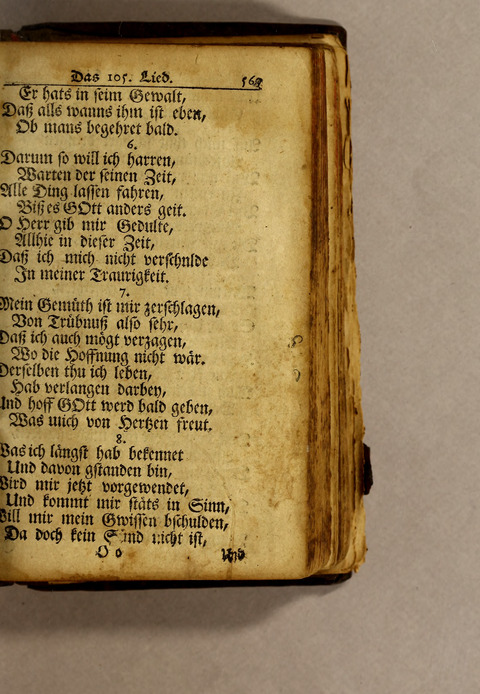 Das 105. Lied. 567
Er hats in seim Gewalt,
Daß alls wanns ihm ist eben,
Ob mans begehret bald.
6.
Darum so will ich harren,
Warten der seinen Zeit,
Alle Ding lassen fahren,
Biß es GOtt anders geit.
O Herr gib mir Gedulte,
Allhie in dieser Zeit,
Daß ich mich nicht verschulde
In meiner Traurigkeit.
7.
Mein Gemüth ist mir zerschlagen,
Von Trübnuß also sehr,
Daß ich auch mögt verzagen,
Wo die Hoffnung nicht wär.
Derselben thu ich leben,
Hab verlangen darbey,
Und hoff GOtt werd bald geben,
Was mich von Hertzen freut.
8.
Was ich längst hab bekennet
Und davon gstanden bin,
Wird mir jetzt vorgewendet,
Und kommt mir stäts in Sinn,
Will mir mein Gwissen bschulden,
Da doch kein Sünd nicht ist,
O o Und